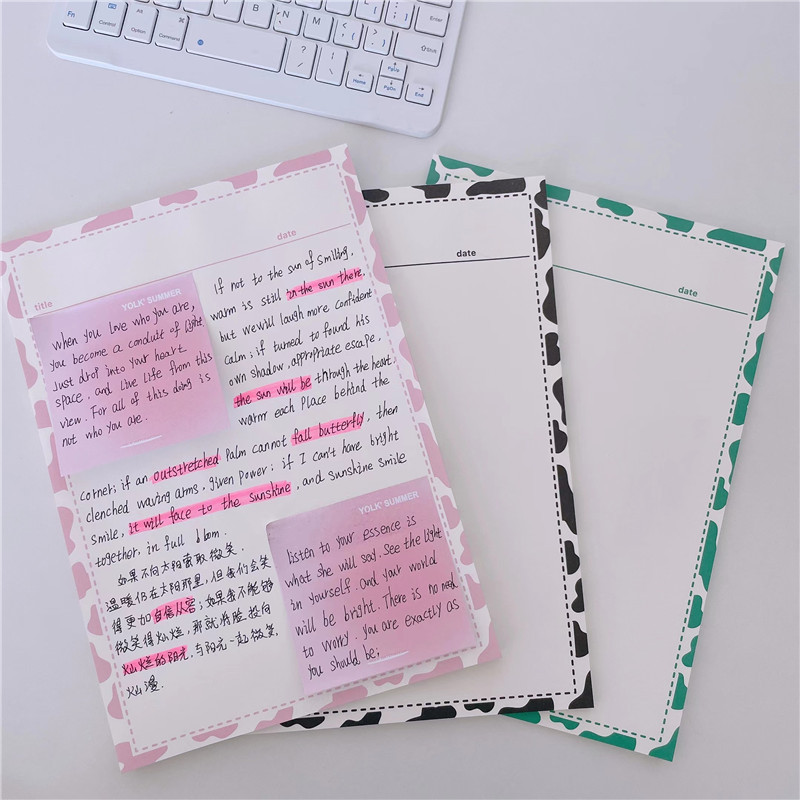 Fn
Control
Alt
Option
Command
B
N
M
Enter
Shift
Home
PgUp
PgDn
End
date
title
If not to the sun of smiling,
warm is still in the sun there,
but we will laugh more confident
calm; if turned to found his
own shadow, appropriate escape,
the sun will be through the heart,
warm each place behind the
corner; if an outstretched palm cannot fall butterfly, then
clenched waving arms, given power; if I can't have bright
smile, it will face to the sunshine, and sunshine smile
together, in full bloom.
YOLK' SUMMER
When you love who you are,
you become a conduit of light
Just drop into your heart
space, and live life from this
view. For all of this doing is
not who you are.
如果不向太阳索取微笑,
温暖仍在太阳那里,但我们会笑
得更加自信从容;如果我不能够
微笑得灿烂,那就将脸投向
灿烂的阳光,与阳光一起微笑,
灿漫.
YOLK' SUMMER
listen to your essence is
what she will say. See the light
in yourself. And your world
will be bright. There is no need
to worry. You are exactly as
you should be;
date
date